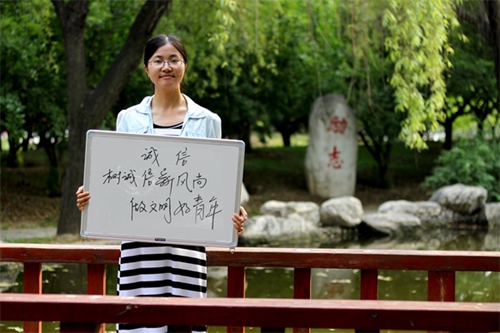 诚信
树诚信新风尚
做文明好青年
励志